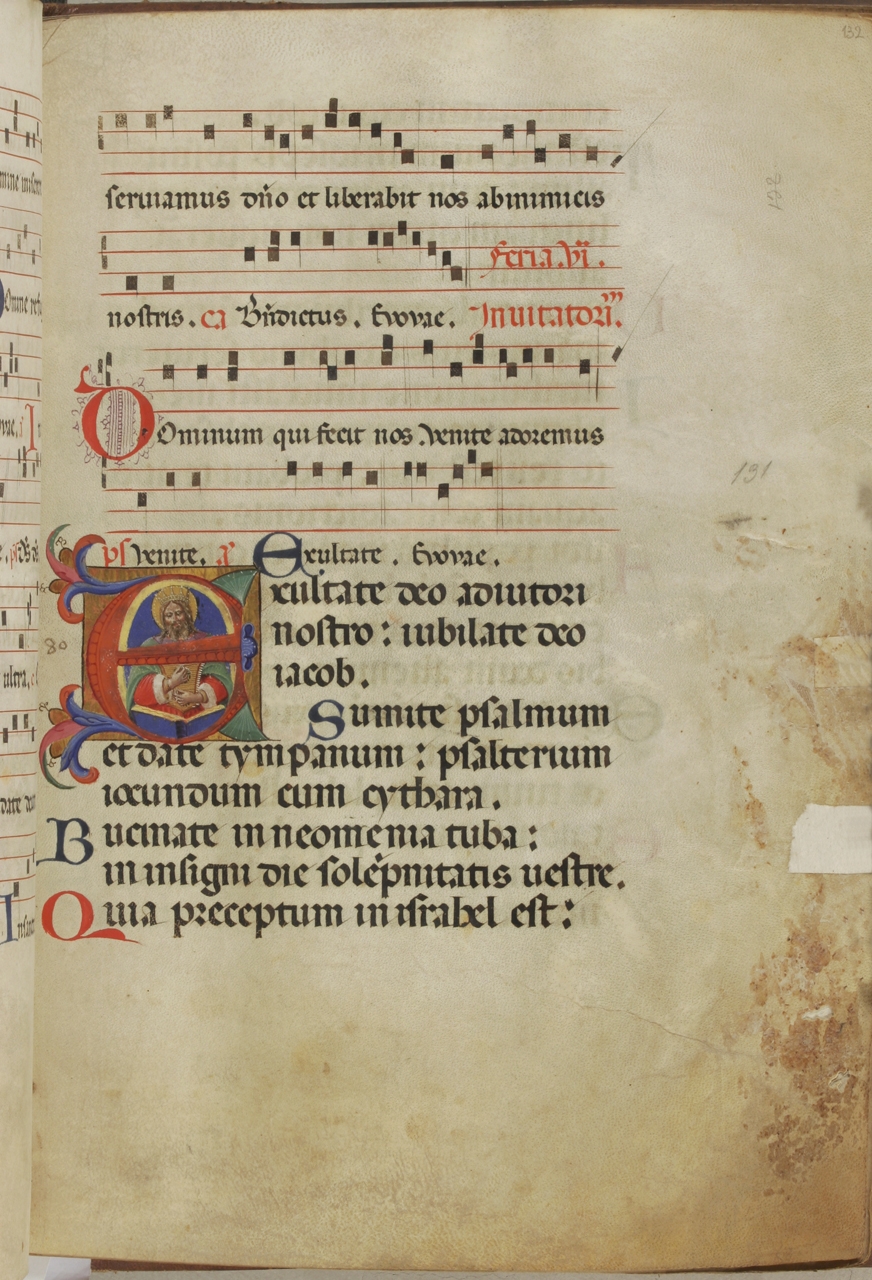 132
128
seruiamus dño et liberabit nos abinimicis
Feria.vi.
nostris. ca Bñdictus. Evovae. Inuitatori.
DOminum qui fecit nos. Venite adoremus
131
ps Venite. Exultate. Evovae.
Exultate deo adiutori
nostro: iubilate deo
80
iacob.
Sumite psalmum
et date tympanum: psalterium
iocundum cum cythara.
Bucinate in neomenia tuba:
in insigni die solẽpnitatis uestre.
Quia preceptum in israhel est: